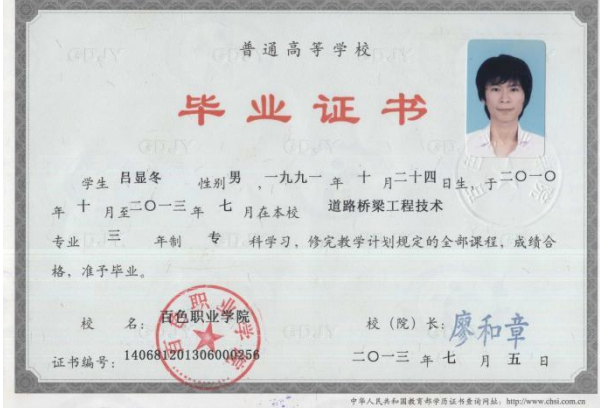 普通高等学校
毕业证书
学生 吕显冬 性别 男 ，一九九一 年 十 月二十四日生，于二〇一〇
年 十 月至二〇一三 年 七 月在本校 道路桥梁工程技术
专业 三 年制 专 科学习，修完教学计划规定的全部课程，成绩合
格，准予毕业。
校 名： 百色职业学院 校（院）长： 廖和章
证书编号： 140681201306000256 二〇一三 年 七 月 五 日
百色职业学院
中华人民共和国教育部学历证书查询网址： http://www.chsi.com.cn